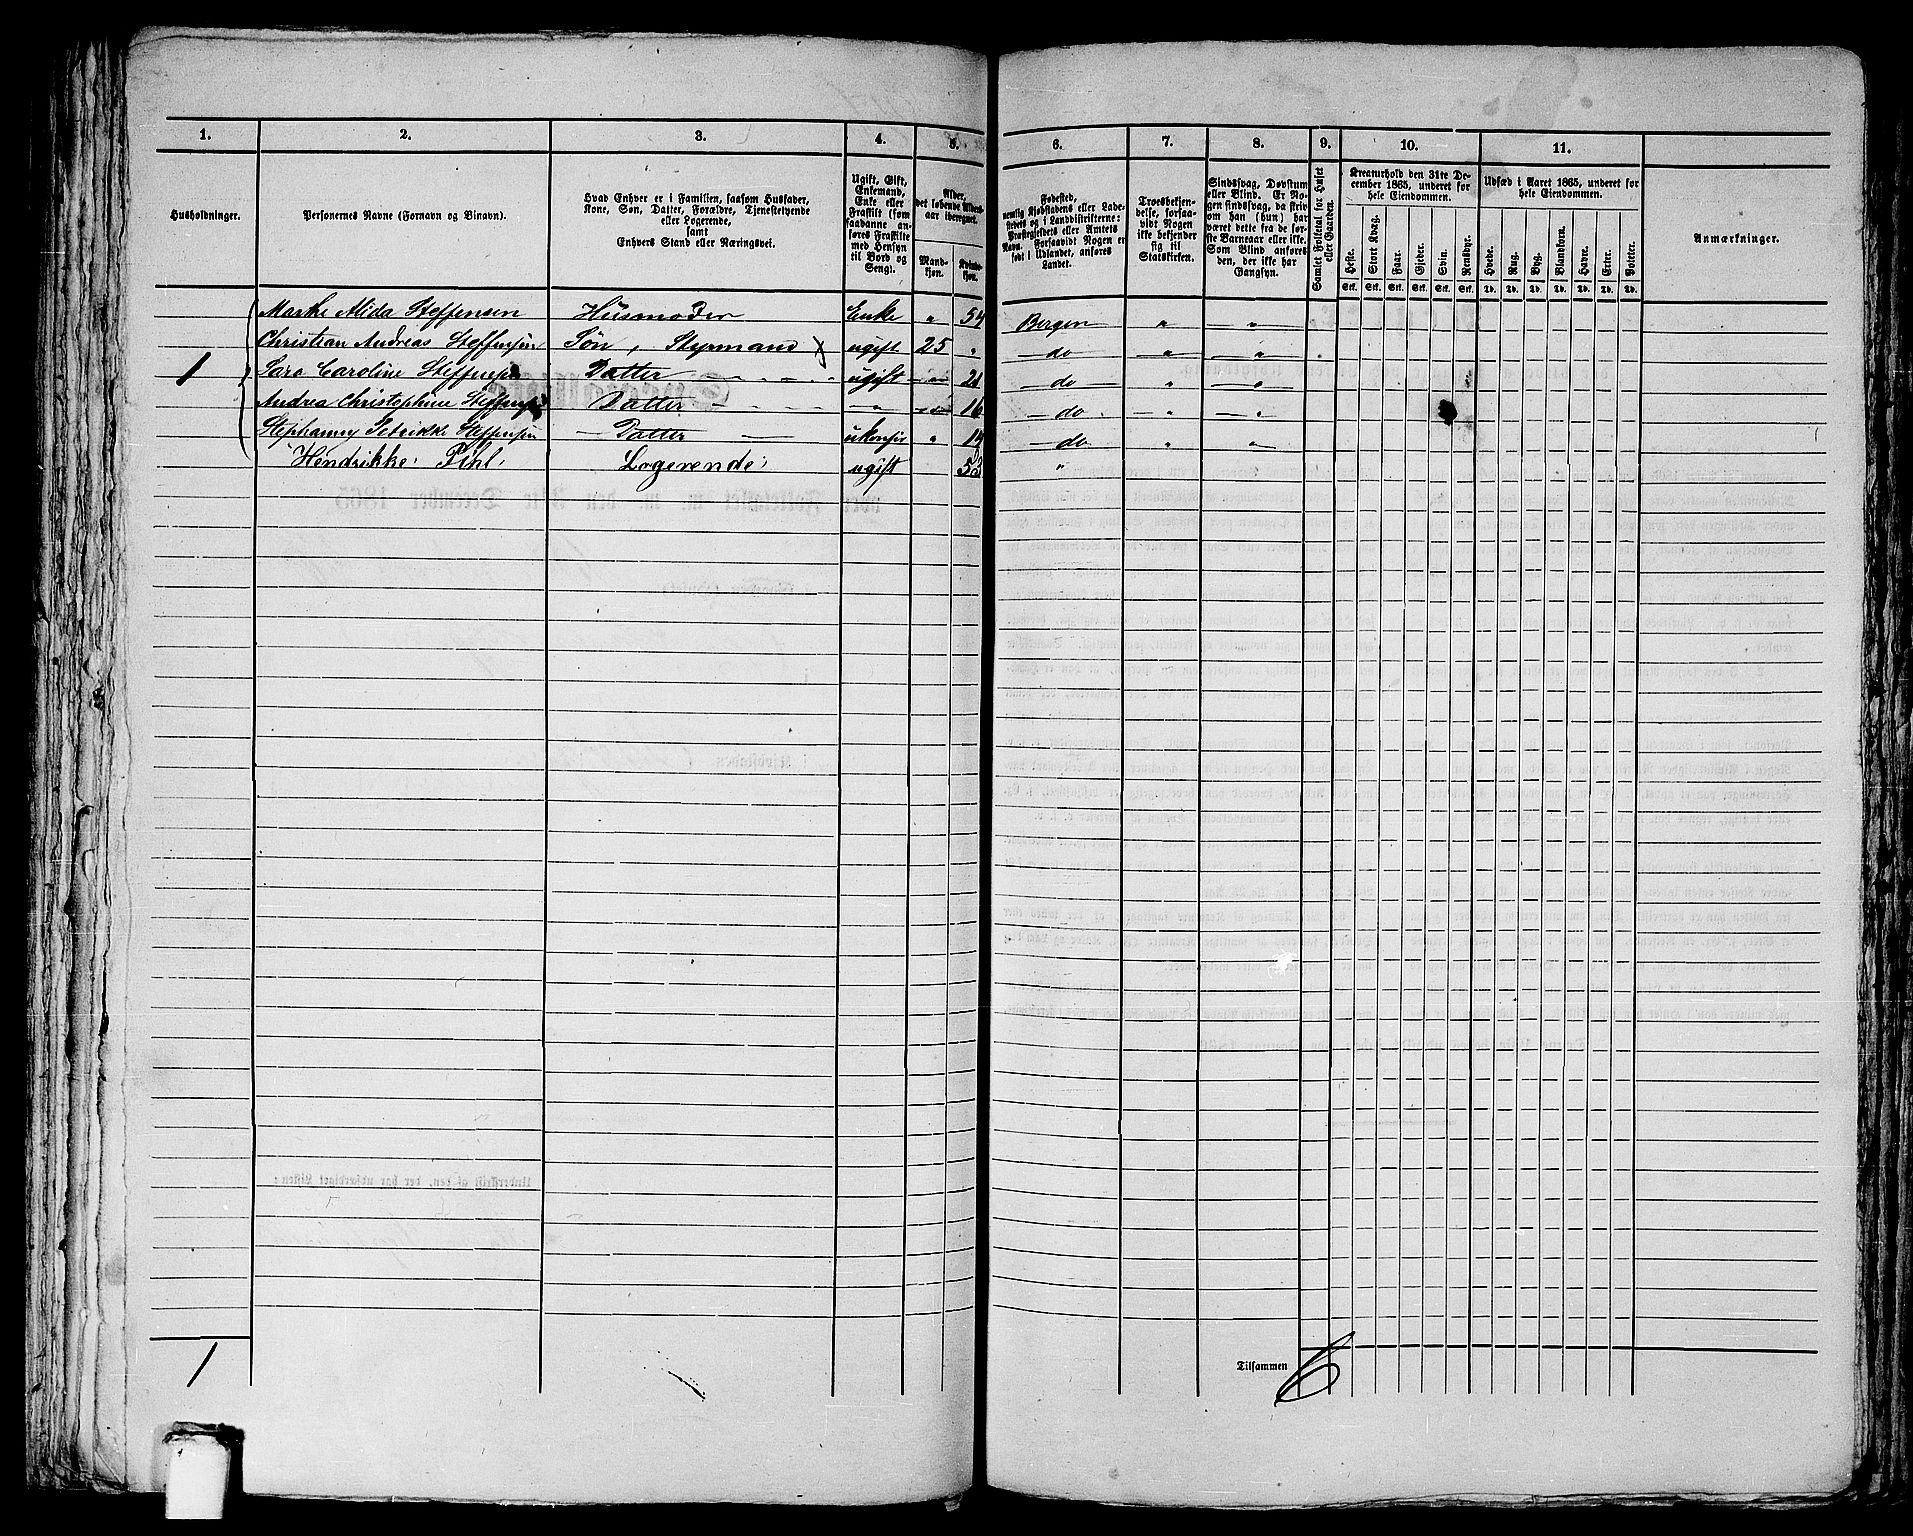 1. 2. 3. 4. 5. 6. 7. 8. 9. 10. 11.
Husholdninger.
Personernes Navne (Fornavn og Binavn).
Hvad Enhver er i Familien, saasom Husfader,
Kone, Søn, Datter, Forældre, Tjenestetyende
eller Logerende,
samt
Enhvers Stand eller Næringsvei.
Ugift, Gift,
Enkemand,
Enke eller
Fraskilt (som
saadanne an-
føres Fraskilte
med Hensyn
til Bord og
Seng).
Alder,
det løbende Alders-
aar iberegnet.
Mand-
kjøn.
Kvinde-
kjøn.
Fødested,
nemlig Kjøbstadens eller Lade-
stedets og i Landdistrikterne:
Præstegjeldets eller Amtets
Navn. Forsaavidt Nogen er
født i Udlandet, anføres
Landet.
Troesbekjen-
delse, forsaa-
vidt Nogen
ikke bekjender
sig til
Statskirken.
Sindssvag, Døvstum
eller Blind. Er No-
gen sindssvag, da skriv
om han (hun) har
været dette fra de før-
ste Barneaar eller ikke.
Som Blind anføres
den, der ikke har
Gangsyn.
Samlet Folketal for Huset
eller Gaarden.
Kreaturhold den 31te De-
cember 1865, underet for
hele Eiendommen.
Heste. Stort Kvæg. Faar. Gjeder. Svin. Rensdyr.
Stk. Stk. Stk. Stk. Stk. Stk.
Udsæd i Aaret 1865, underet for
hele Eiendommen.
Hvede. Rug. Byg. Blandkorn. Havre. Erter. Poteter.
Td. Td. Td. Td. Td. Td. Td.
Anmærkninger.
Marthe Alida Steffensen Husmoder Enke " 54 Bergen " — " —
Christian Andreas Steffensen Søn, Styrmand ugift 25 " — do " — " —
1 Sara Caroline Steffensen Datter ugift — " — 21 — do — — " — — " —
Andrea Christophine Steffensen Datter — " — — " — 16 — do — " — — " —
Stephanny Petrikke Steffensen Datter ukonfir " 14 — do " "
Hendrikke Pihl Logerende ugift 53 "
1
Tilsammen 6